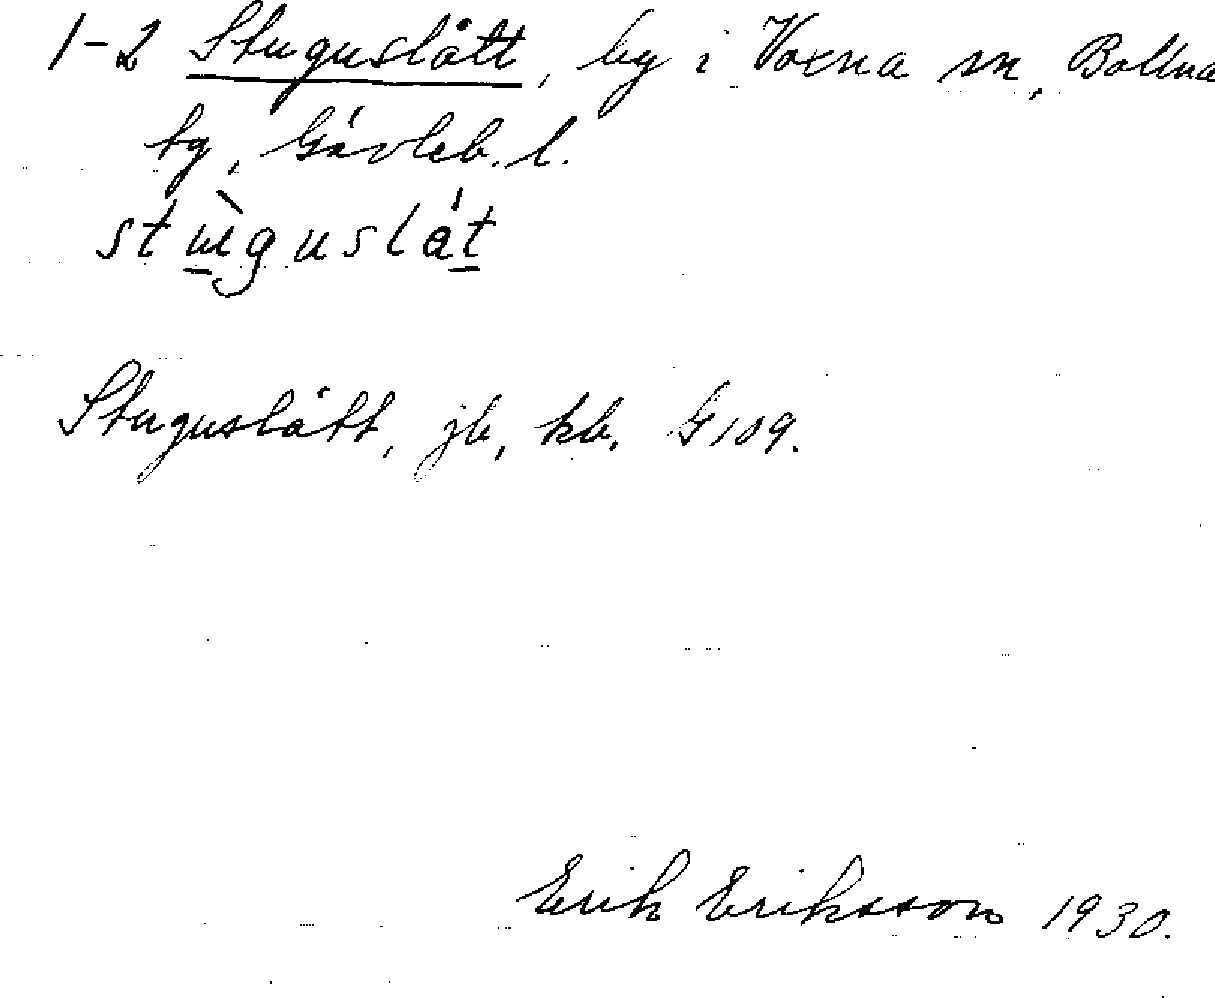 1-2 Stuguslått, by i Voxna sn, Bollnä
tg, Gävleb. l.
stùguslåt
Stuguslått, jb, kb, G 109.
Erik Eriksson 1930.